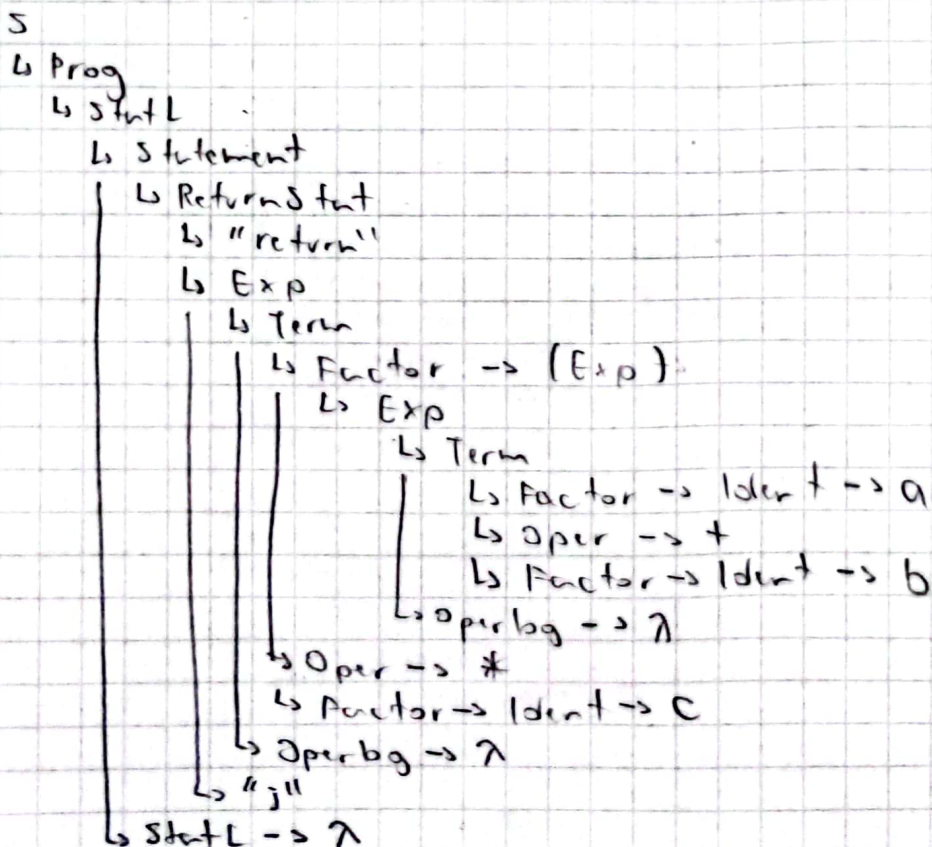 S
↳ Prog
↳ StntL
↳ Statement
↳ ReturnStnt
↳ "return"
↳ Exp
↳ Term
↳ Factor -> (Exp)
↳ Exp
↳ Term
↳ Factor -> Ident -> a
↳ Oper -> +
↳ Factor -> Ident -> b
↳ Operbg -> λ
↳ Oper -> *
↳ Factor -> Ident -> c
↳ Operbg -> λ
↳ ";"
↳ StntL -> λ